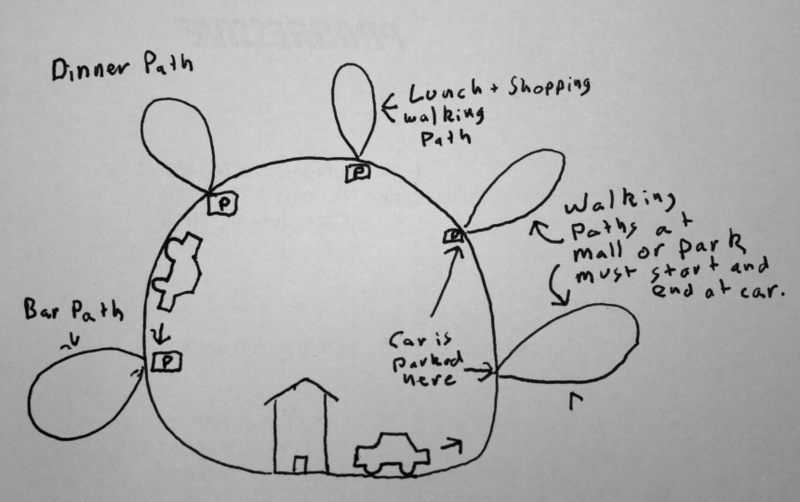 PROGRESSIVE
Dinner Path
Lunch + Shopping
walking
Path
P
P
P
Walking
Paths at
mall or park
must start and
end at car.
Bar Path
P
Car is
parked
here